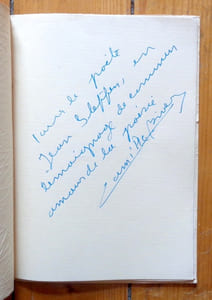 Pour le poète
Jean Steffen, en
témoignage de commun
amour de la poésie